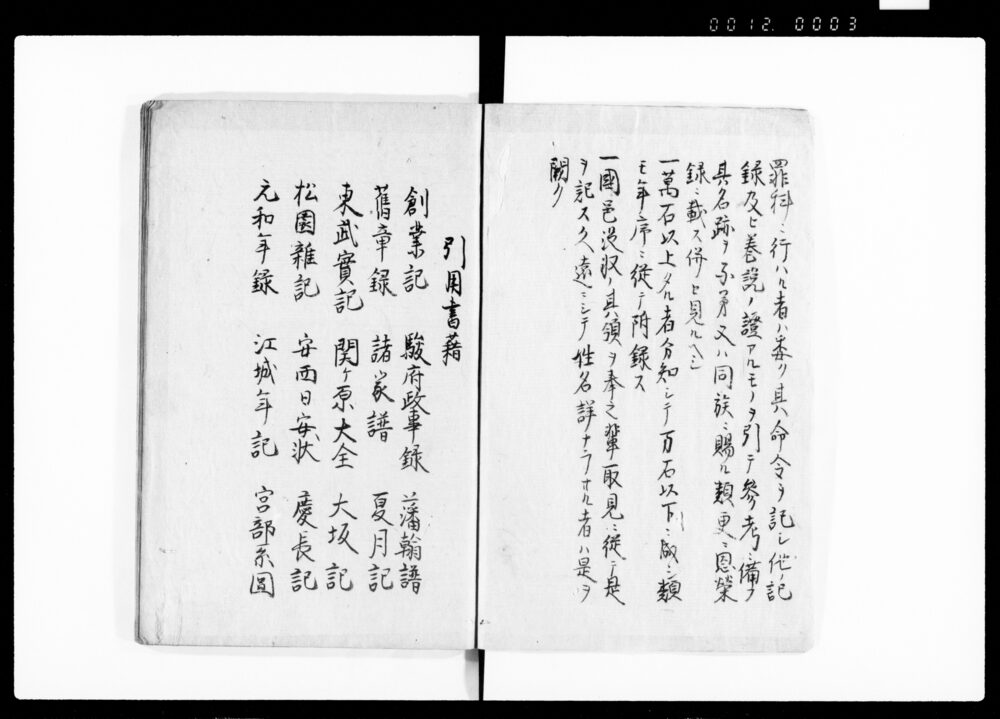 0012. 0003
罪科ニ行ハル者ハ委ク其命令ヲ記シ他ノ記
録及ヒ巷説ノ證アルモノヲ引テ參考ニ備フ
其名跡ヲ子弟又ハ同族ニ賜ル類更ニ恩榮
録ニ載ス併セ見ルヘシ
一萬石以上タル者分知シテ万石以下ニ成シ類
モ年序ニ從テ附録ス
一國邑没収ノ其領ヲ奉之輩取見ニ從テ是
ヲ記ス久遠ニシテ姓名詳ナラサル者ハ是ヲ
闕ク
引用書藉
創業記 駿府政事録 藩翰譜
舊章録 諸家譜 夏月記
東武實記 関ケ原大全 大坂記
松園雜記 安西日安状 慶長記
元和年録 江城年記 宮部系圖